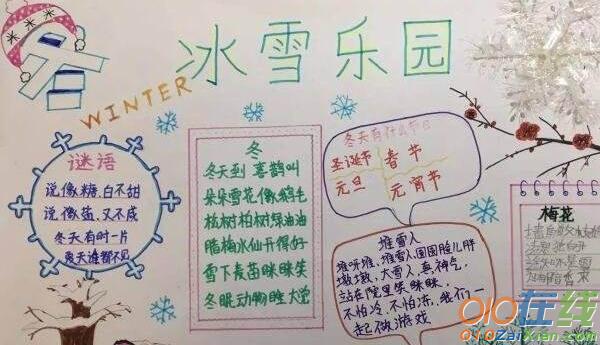 冬
冰雪乐园
WINTER
谜语
说像糖,白不甜
说像盐,又不咸
冬天有时一片
夏天谁都不见
冬
冬天到 喜鹊叫
朵朵雪花像鹅毛
松树柏树绿油油
腊梅水仙开得好
雪下麦苗眯眯笑
冬眠动物睡大觉
冬天有什么节日
圣诞节 春节
元旦 元宵节
堆雪人
堆呀堆,堆雪人,圆圆脸儿胖
墩墩,大雪人,真神气,
站在院里笑眯眯,
不怕冷,不怕冻,我们一
起做游戏
梅花
墙角数
为有暗香来
010在线
010ZaiXian.com